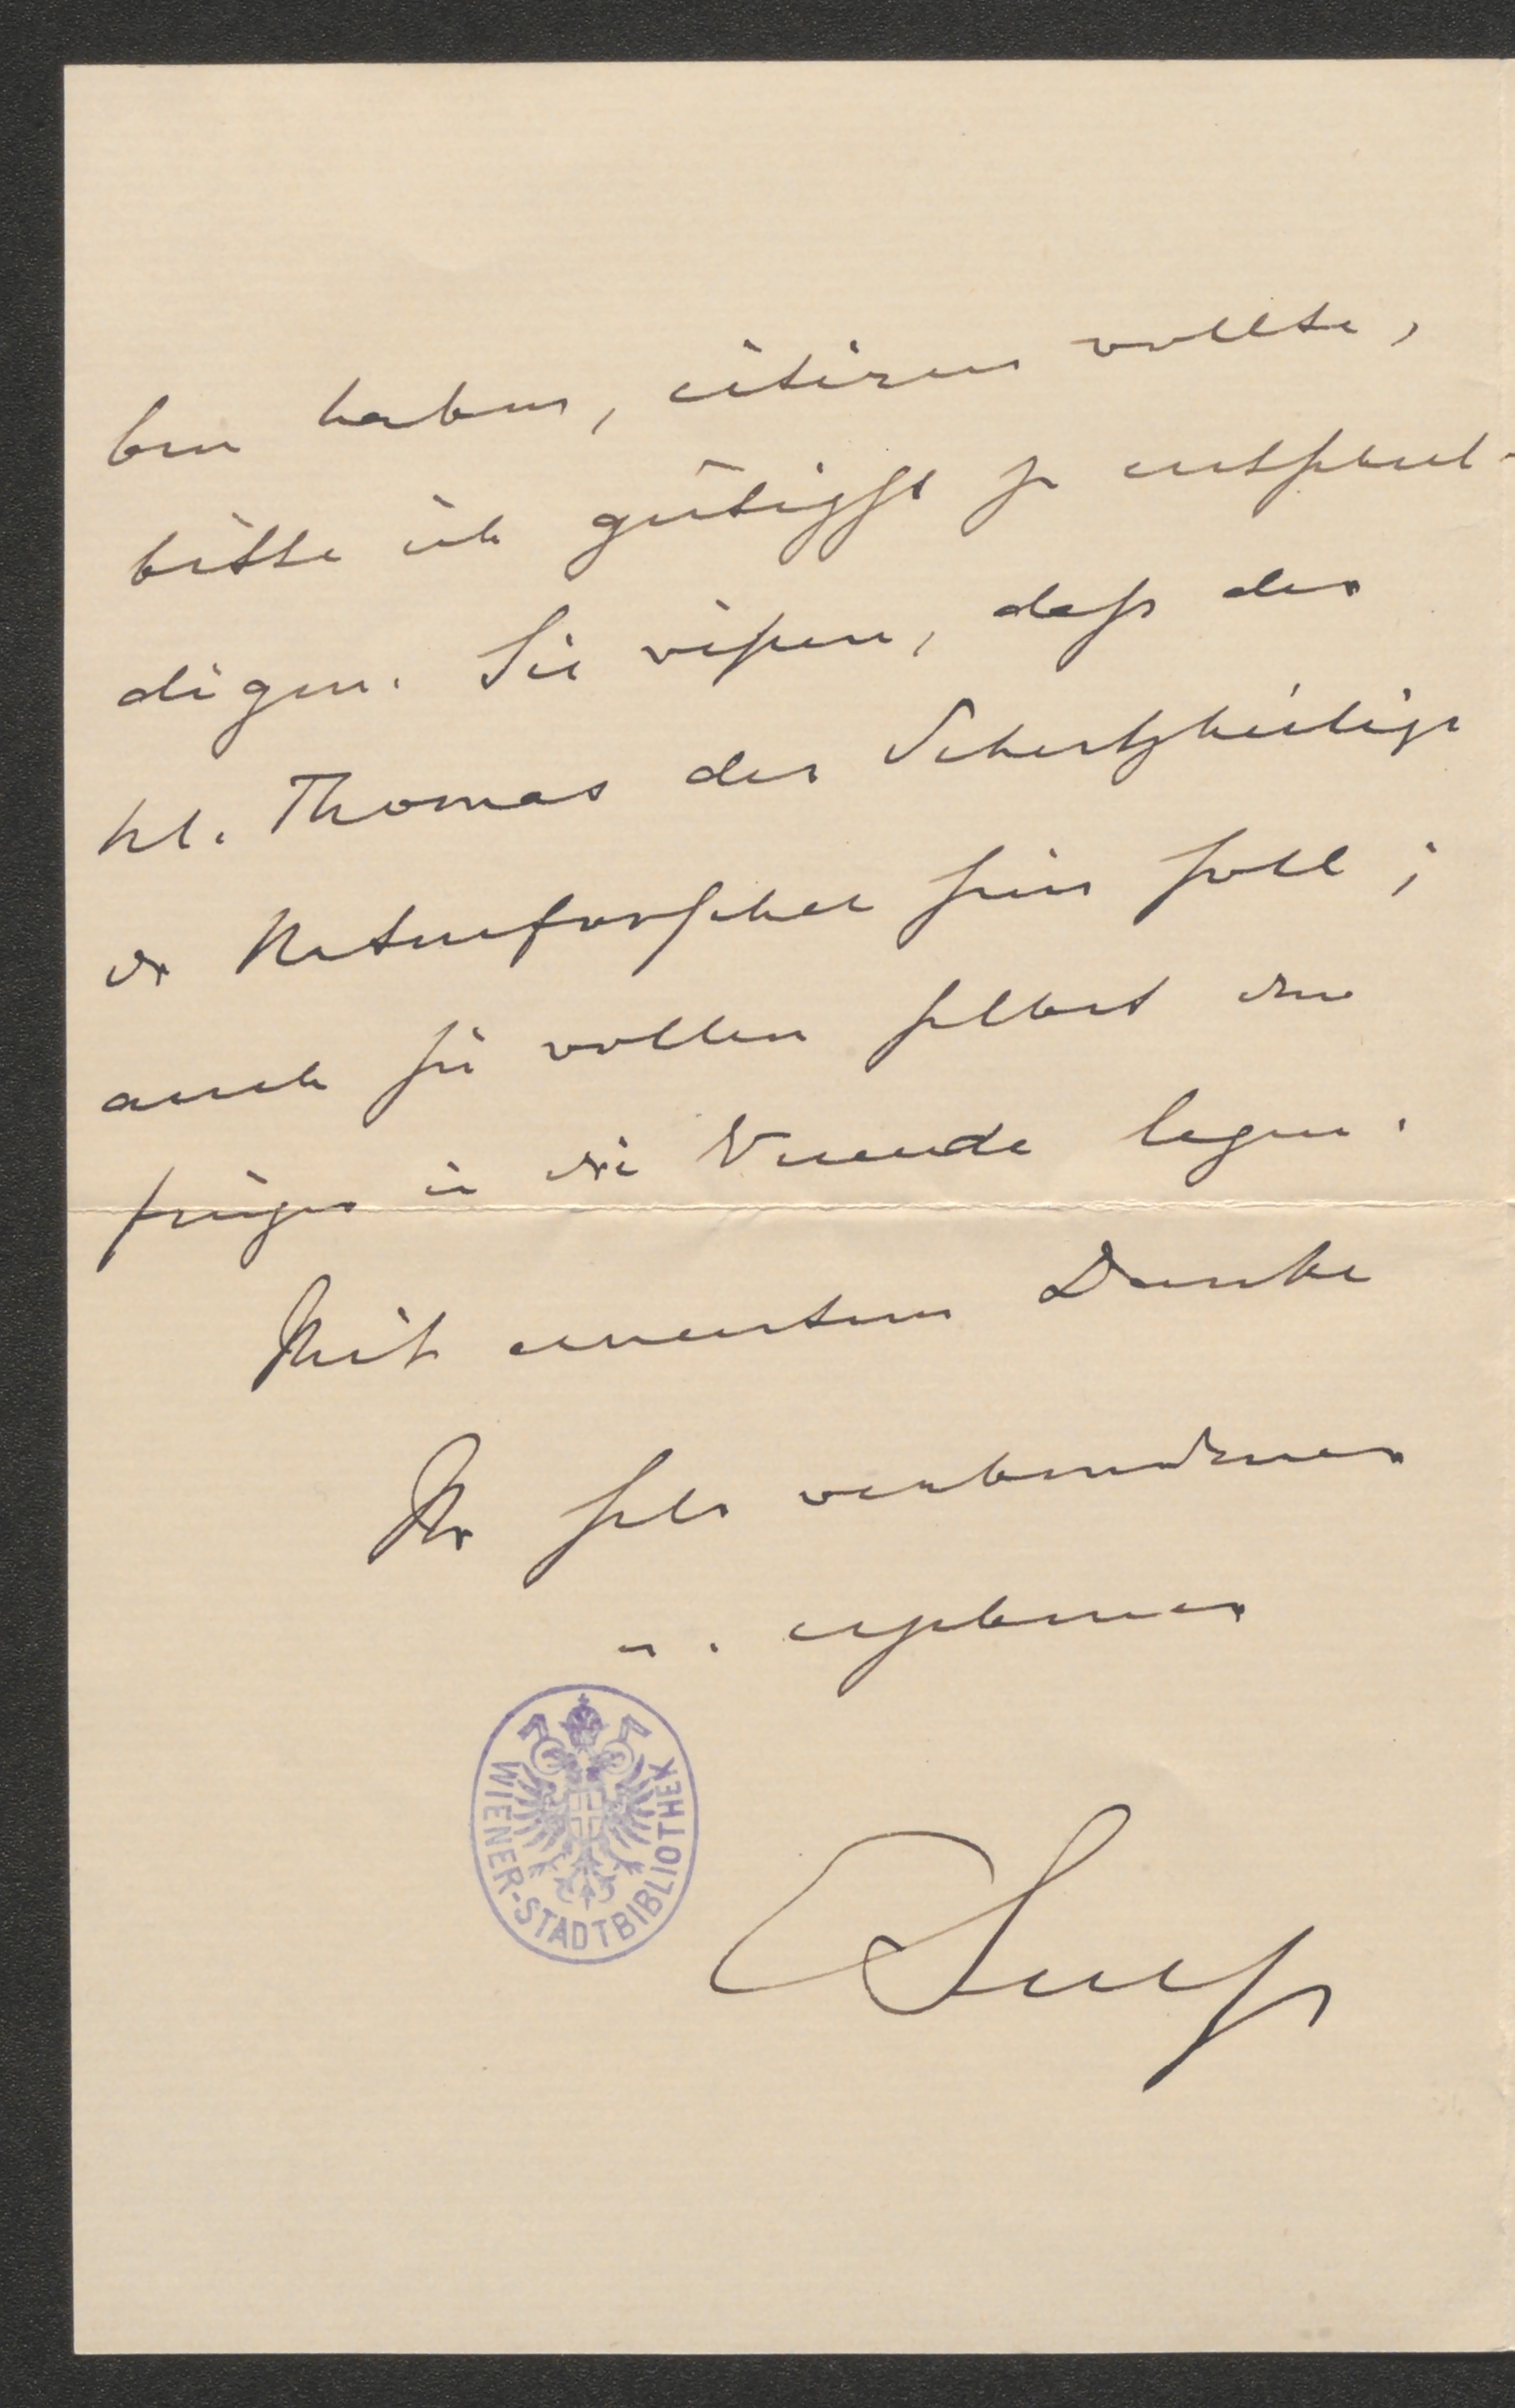 ben haben, citiren wollte,
bitte ich gütigst zu entschul-
digen. Sie wissen, daß der
hl. Thomas der Schutzheilige
der Naturforscher sein soll;
auch sie wollen selbst den
Finger in die Wunde legen.
Mit erneutem Danke
Ihr sehr verbundener
u. ergebener
ESueß
WIENER-STADTBIBLIOTHEK